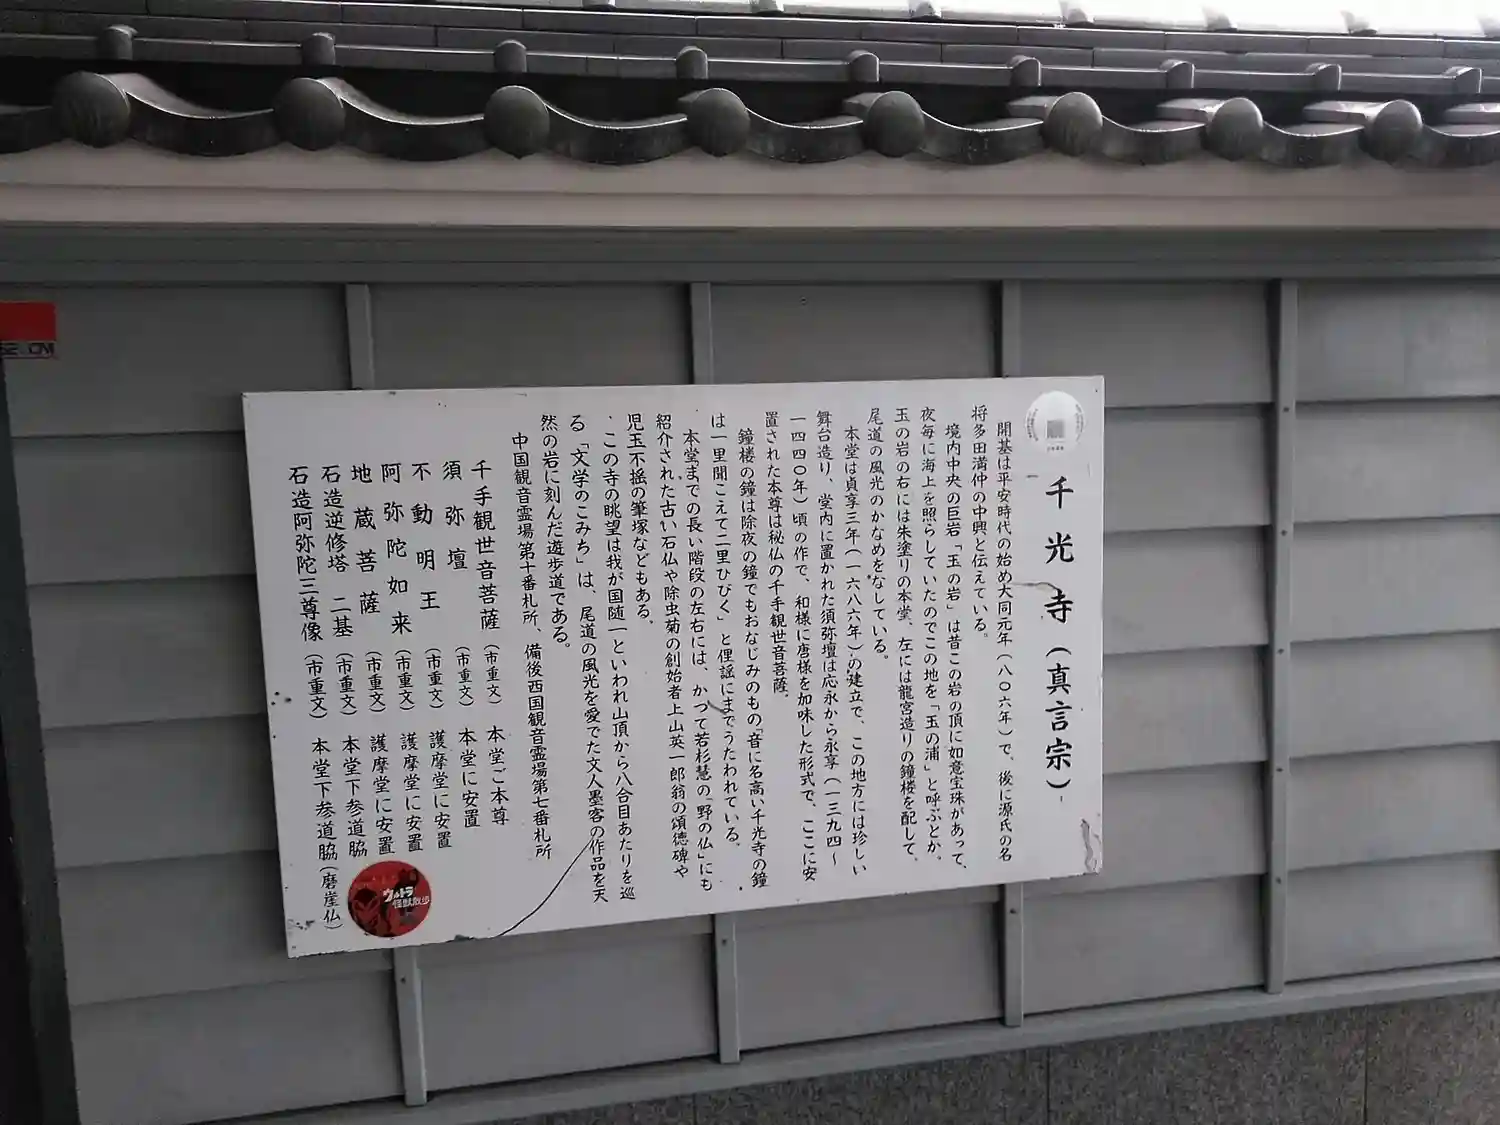 千光寺(真言宗)
開基は平安時代の始め大同元年(八〇六年)で、後に源氏の名
将多田満仲の中興と伝えている。
境内中央の巨岩「玉の岩」は昔この岩の頂に如意宝珠があって、
夜毎に海上を照らしていたのでこの地を「玉の浦」と呼ぶとか。
玉の岩の右には朱塗りの本堂、左には龍宮造りの鐘楼を配して、
尾道の風光のかなめをなしている。
本堂は貞享三年(一六八六年)の建立で、この地方には珍しい
舞台造り、堂内に置かれた須弥壇は応永から永享(一三九四〜
一四四〇年)頃の作で、和様に唐様を加味した形式で、ここに安
置された本尊は秘仏の千手観世音菩薩。
鐘楼の鐘は除夜の鐘でもおなじみのもの「音に名高い千光寺の鐘
は一里聞こえて二里ひびく」と俚謡にまでうたわれている。
本堂までの長い階段の左右には、かつて若杉慧の「野の仏」にも
紹介された古い石仏や除虫菊の創始者上山英一郎翁の頌徳碑や
児玉不揺の筆塚などもある。
この寺の眺望は我が国随一といわれ山頂から八合目あたりを巡
る「文学のこみち」は、尾道の風光を愛でた文人墨客の作品を天
然の岩に刻んだ遊歩道である。
中国観音霊場第十番札所、備後西国観音霊場第七番札所
千手観世音菩薩(市重文) 本堂ご本尊
須弥壇(市重文) 本堂に安置
不動明王(市重文) 護摩堂に安置
阿弥陀如来(市重文) 護摩堂に安置
地蔵菩薩(市重文) 護摩堂に安置
石造逆修塔 二基(市重文) 本堂下参道脇
石造阿弥陀三尊像(市重文) 本堂下参道脇(磨崖仏)
ウルトラ
怪獣散歩